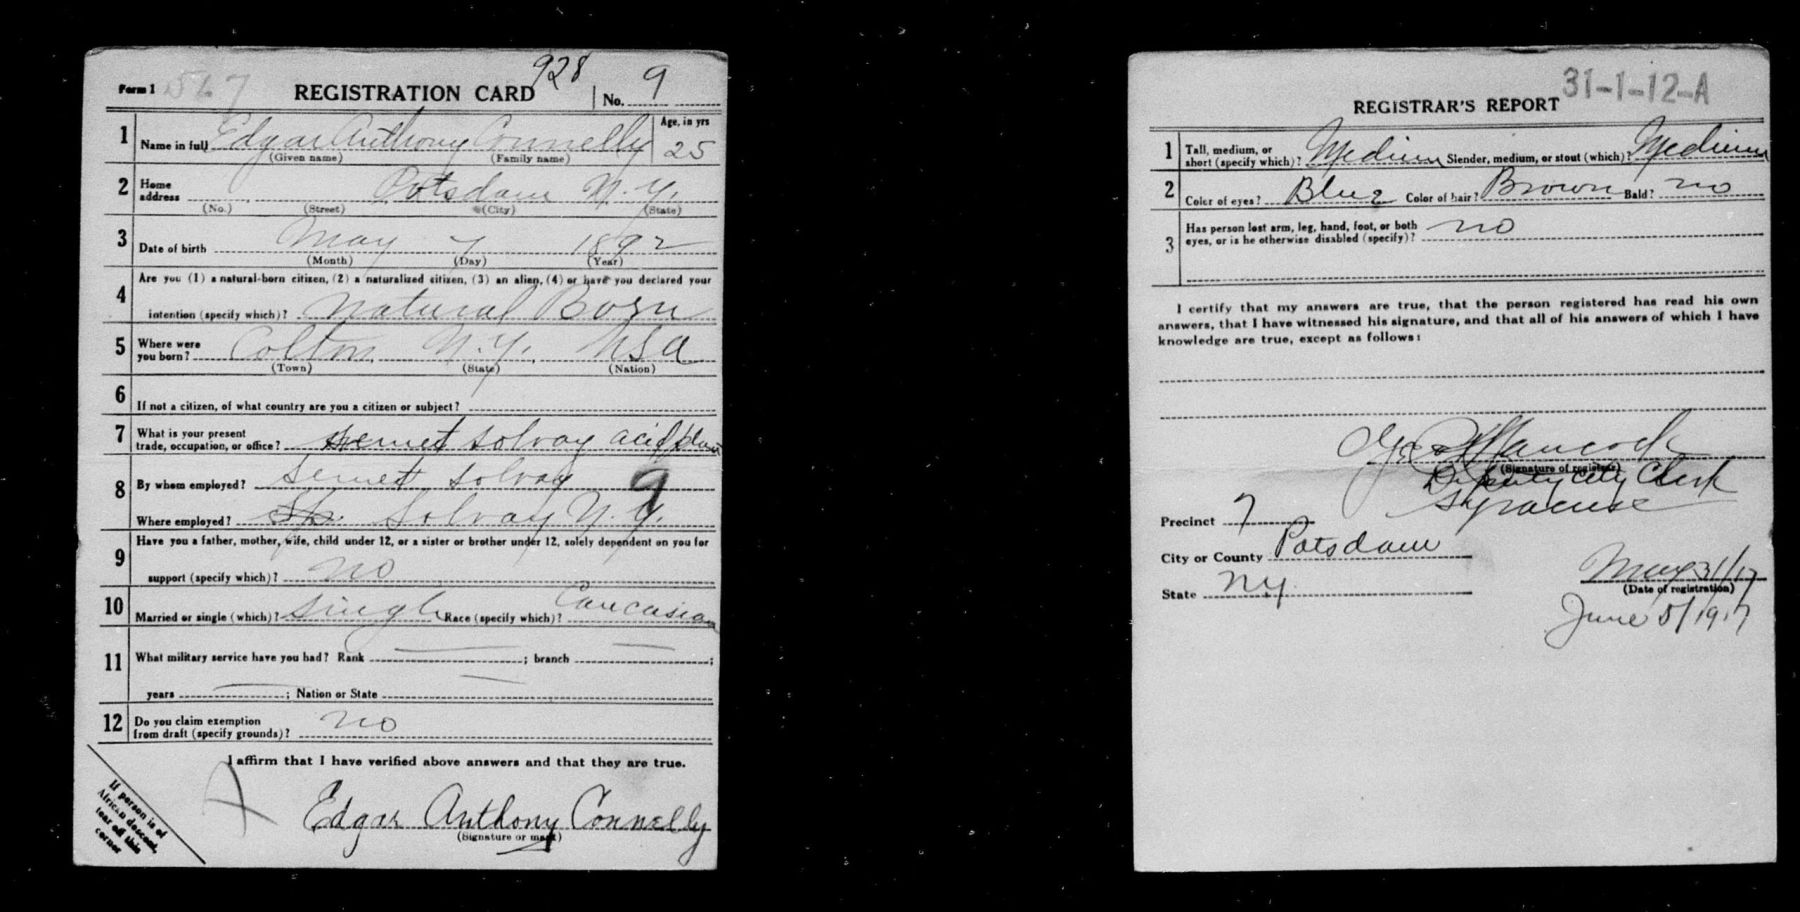 Form 1 567 REGISTRATION CARD 928 No. 9
1 Name in full Edgar Anthony Connelly Age, in yrs 25
(Given name) (Family name)
2 Home address Potsdam N.Y.
(No.) (Street) (City) (State)
3 Date of birth May 7 1892
(Month) (Day) (Year)
4 Are you (1) a natural-born citizen, (2) a naturalized citizen, (3) an alien, (4) or have you declared your
intention (specify which)? Natural Born
5 Where were you born? Colton N.Y. USA
(Town) (State) (Nation)
6 If not a citizen, of what country are you a citizen or subject?
7 What is your present trade, occupation, or office? Semet Solvay acid plant
8 By whom employed? Semet Solvay 9
Where employed? Solvay N.Y.
9 Have you a father, mother, wife, child under 12, or a sister or brother under 12, solely dependent on you for
support (specify which)? no
10 Married or single (which)? Single Race (specify which)? Caucasian
11 What military service have you had? Rank — ; branch — ;
years — ; Nation or State —
12 Do you claim exemption from draft (specify grounds)? no
I affirm that I have verified above answers and that they are true.
Edgar Anthony Connelly
(Signature or mark)
If person is of
African descent,
tear off this
corner
31-1-12-A
REGISTRAR'S REPORT
1 Tall, medium, or short (specify which)? Medium Slender, medium, or stout (which)? Medium
2 Color of eyes? Blue Color of hair? Brown Bald? no
3 Has person lost arm, leg, hand, foot, or both eyes, or is he otherwise disabled (specify)? no
I certify that my answers are true, that the person registered has read his own
answers, that I have witnessed his signature, and that all of his answers of which I have
knowledge are true, except as follows:
Hancock
(Signature of registrar)
Deputy City Clerk
Syracuse
Precinct 7
City or County Potsdam
May 31/17
State NY
(Date of registration)
June 5/1917